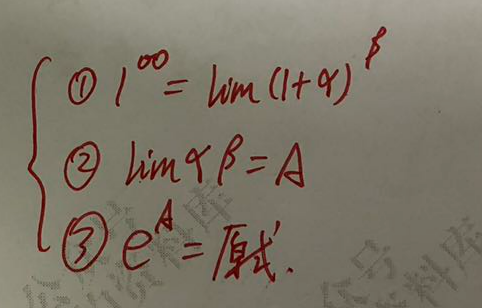 ① 1^∞ = lim (1+α)^β
② lim α β = A
③ e^A = 原式.